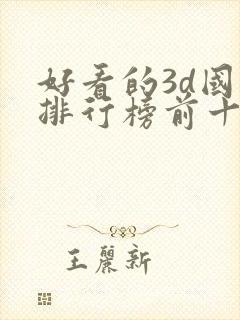 好看的3d國
排行榜前十
王麗新